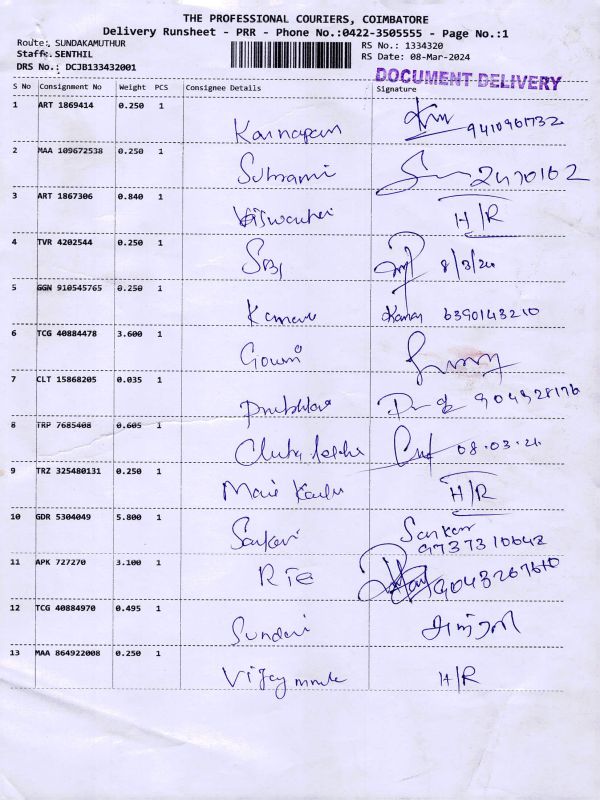 THE PROFESSIONAL COURIERS, COIMBATORE
Delivery Runsheet - PRR - Phone No.:0422-3505555 - Page No.:1
Route: SUNDAKAMUTHUR
RS No.: 1334320
Staff: SENTHIL
RS Date: 08-Mar-2024
DRS No.: DCJB133432001
DOCUMENT DELIVERY
S No Consignment No Weight PCS Consignee Details Signature
1 ART 1869414 0.250 1
Kannapan 9410961732
2 MAA 109672538 0.250 1
Subrami 2470162
3 ART 1867306 0.840 1
H/R
4 TVR 4202544 0.250 1
8/3/24
5 GGN 910545765 0.250 1
6390143210
6 TCG 40884478 3.600 1
Gowri
7 CLT 15868205 0.035 1
904328176
8 TRP 7685408 0.605 1
08.03.24
9 TRZ 325480131 0.250 1
H/R
10 GDR 5304049 5.800 1
Sankari 9737310642
11 APK 727270 3.100 1
9043267610
12 TCG 40884970 0.495 1
Sundari
13 MAA 864922008 0.250 1
H/R